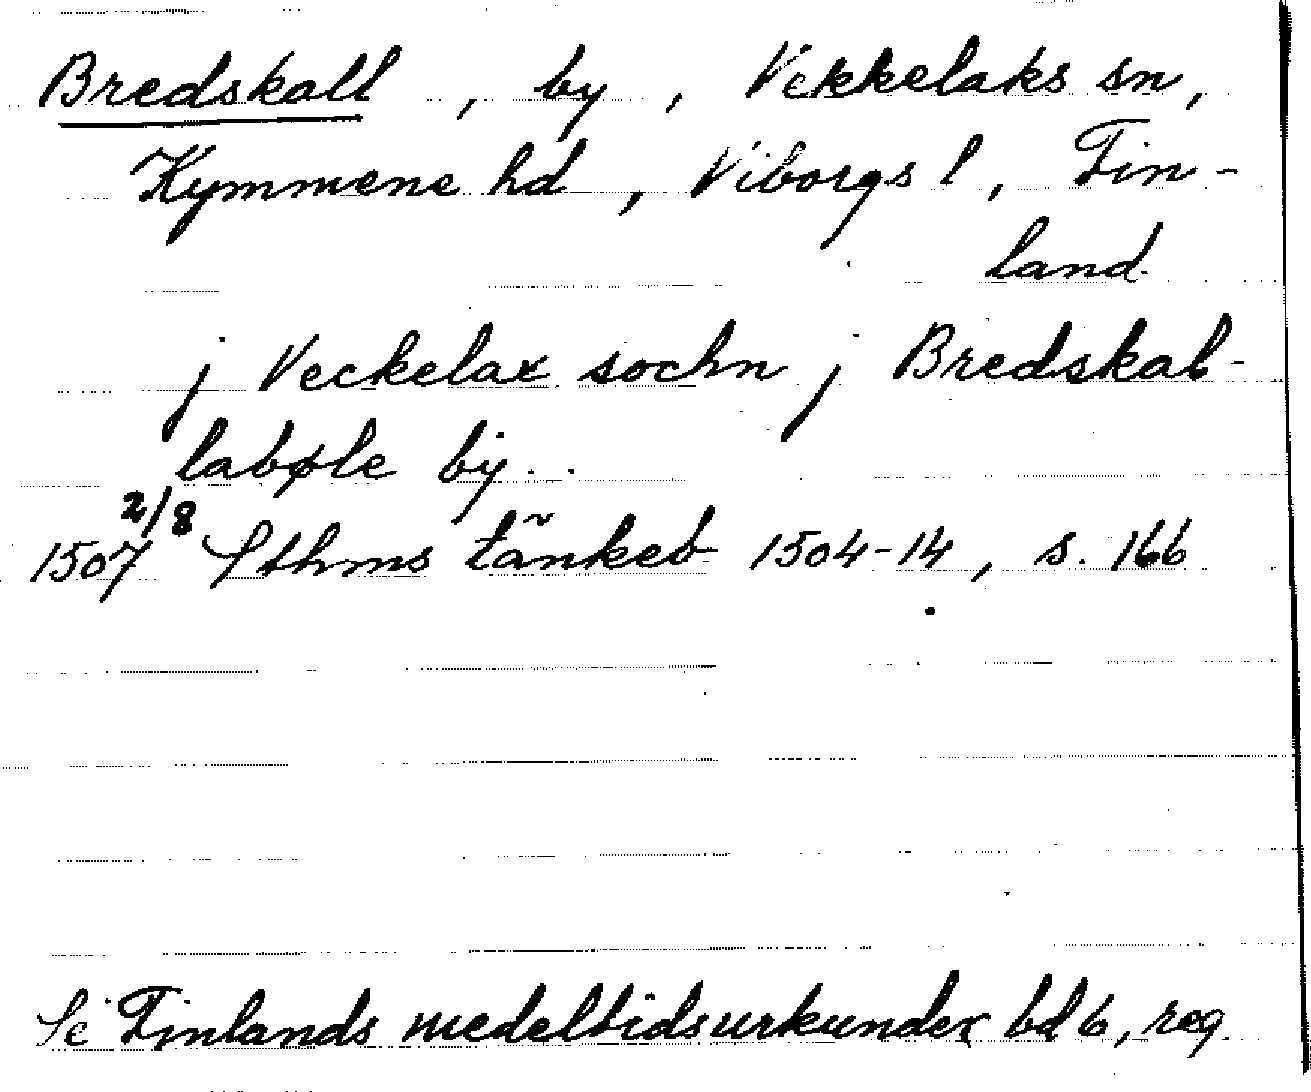 Bredskall, by, Vekkelaks sn,
Kymmene hd, Viborgs l, Fin-
land
j Veckelax sochn j Bredskal-
labøle by..
1507 2/8 Sthms tänkeb 1504-14, s. 166
Se Finlands medeltidsurkunder bd 6, reg.